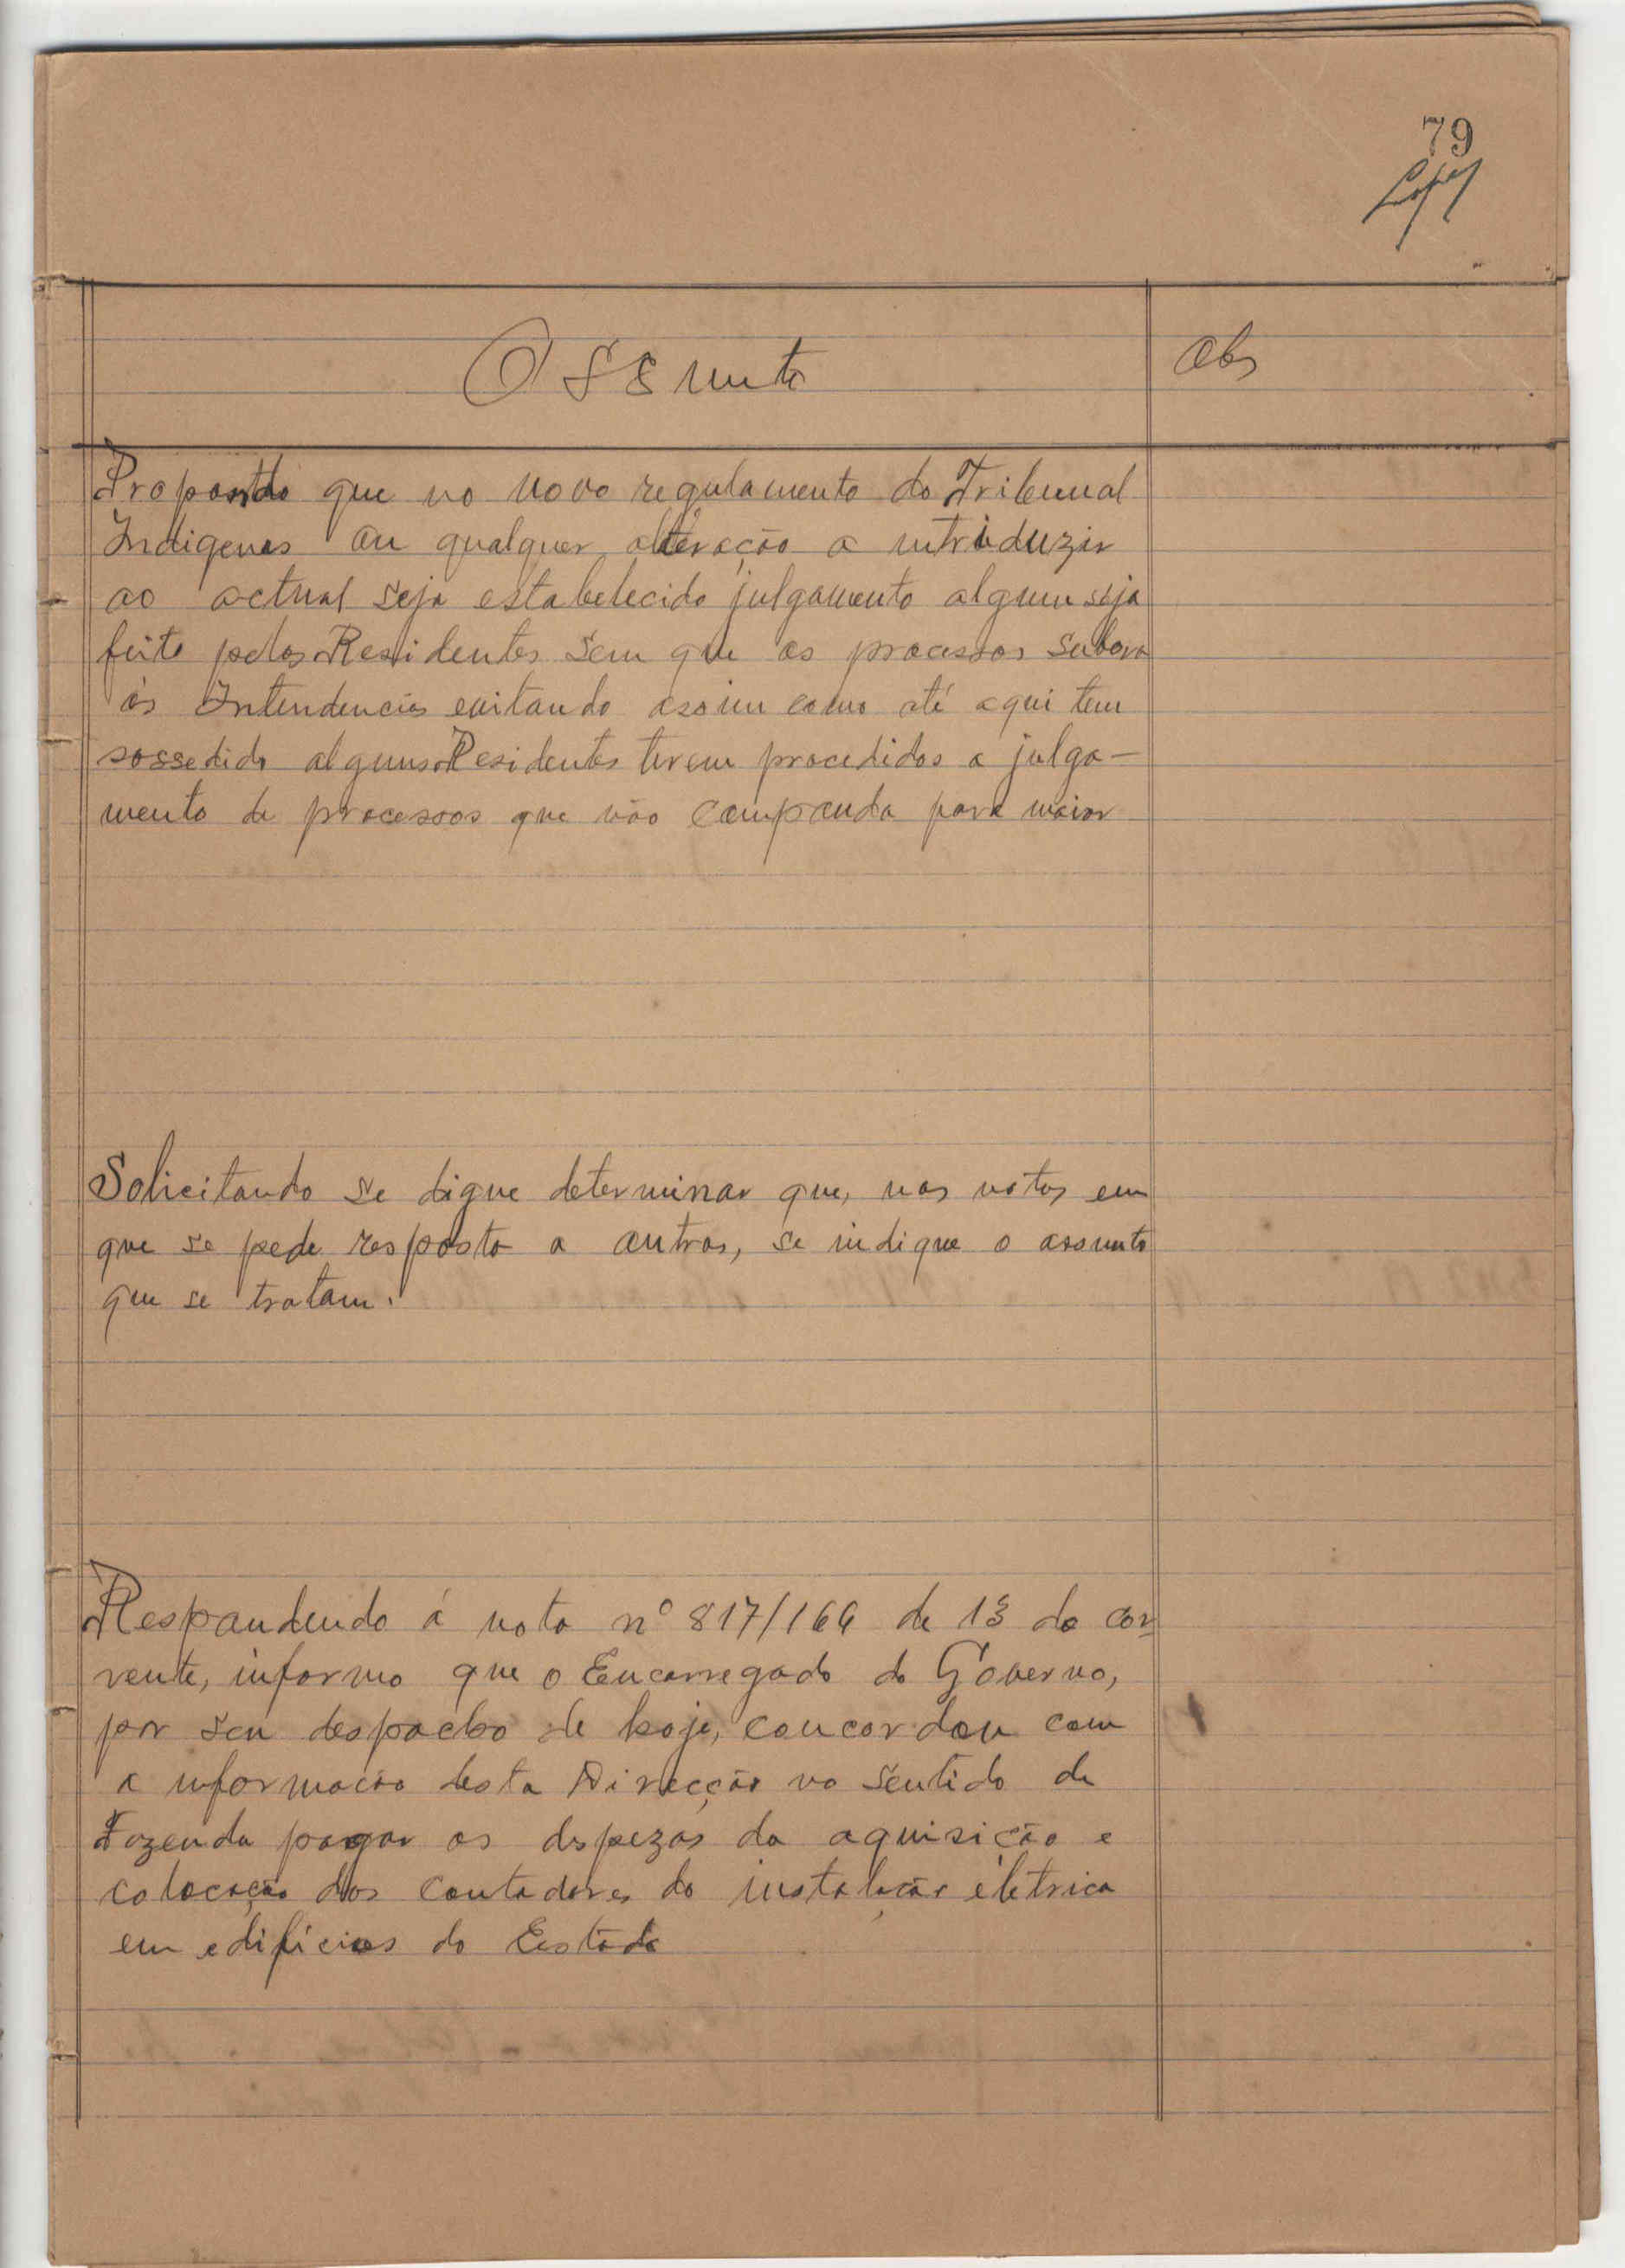 79
Lopes
Assunto
Obs
Propondo que no novo regulamento do Tribunal
Indigenas ou qualquer alteração a introduzir
ao actual seja estabelecido julgamento algum seja
feito pelos Residentes sem que os processos subam
ás Intendencias evitando assim como até aqui tem
sossedido alguns Residentes terem procedidos a julga-
mento de processos que não
para maior
Solicitando se digne determinar que, nas notas em
que se pede resposta a outras, se indique o assunto
que se tratam.
Respondendo á nota nº 817/164 de 13 do cor-
rente, informo que o Encarregado do Governo,
por seu despacho de hoje, concordou com
a informação desta Direcção no sentido de
Fazenda pagar as dspezas da aquisição e
colocação dos contadores da instalação életrica
em edifícios do Estado